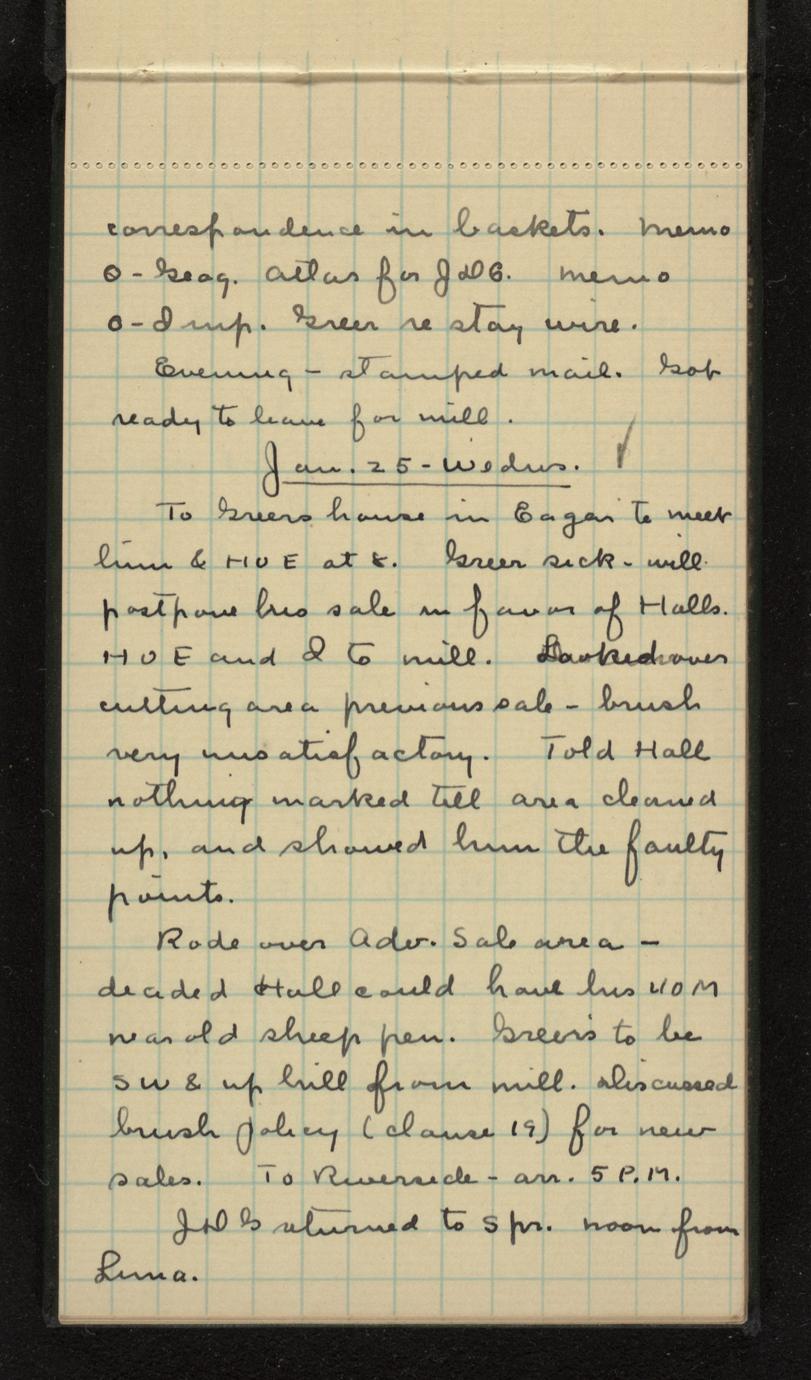 correspondence in baskets. Memo
O - Geog. Atlas for JDG. Memo
O - Imp. Greer re stay wire.
Evening - stamped mail. Got
ready to leave for mill.
Jan. 25 - Wednes.
To Greers house in Eagar to meet
him & HUE at 8. Greer sick - will
postpone his sale in favor of Halls.
HUE and I to mill. Looked over
cutting area previous sale - brush
very unsatisfactory. Told Hall
nothing marked till area cleaned
up, and showed him the faulty
points.
Rode over Adv. Sale area -
decided Hall could have his 40 M
near old sheep pen. Greer's to be
SW & up hill from mill. Discussed
brush policy (clause 19) for new
sales. To Riverside - arr. 5 P.M.
JDG returned to Spr. noon from
Luna.